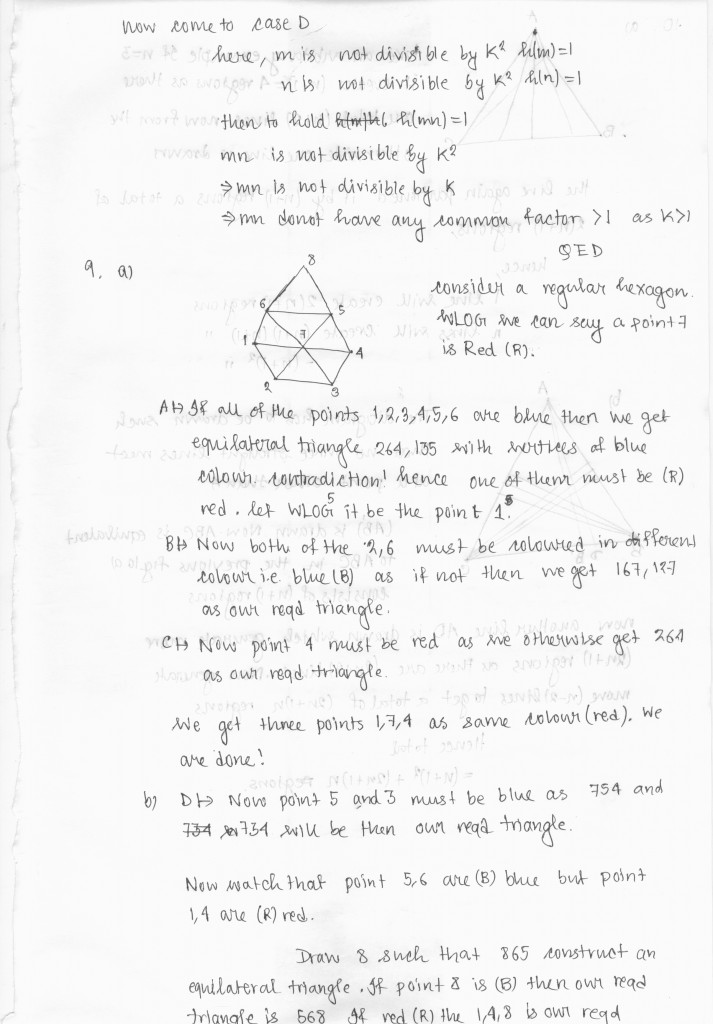 now come to case D
here, m is not divisible by K² h(m)=1
n is not divisible by K² h(n)=1
then to hold h(mn)=1
mn is not divisible by K²
⇒ mn is not divisible by K
⇒ mn donot have any common factor >1 as K>1
QED
9. a)
8
6
5
7
1
4
2
3
consider a regular hexagon.
WLOG we can say a point 7
is Red (R).
A↦ If all of the points 1,2,3,4,5,6 are blue then we get
equilateral triangle 264, 135 with vertices of blue
colour. contradiction! hence one of them must be (R)
red. let WLOG it be the point 1.
B↦ Now both of the 2,6 must be coloured in different
colour i.e. blue (B) as if not then we get 167, 127
as our reqd triangle.
C↦ Now point 4 must be red as we otherwise get 264
as our reqd triangle.
We get three points 1,7,4 as same colour (red). We
are done!
b) D↦ Now point 5 and 3 must be blue as 754 and
734 will be then our reqd triangle.
Now watch that point 5,6 are (B) blue but point
1,4 are (R) red.
Draw 8 such that 865 construct an
equilateral triangle. If point 8 is (B) then our reqd
triangle is 568 If red (R) the 1,4,8 is our reqd